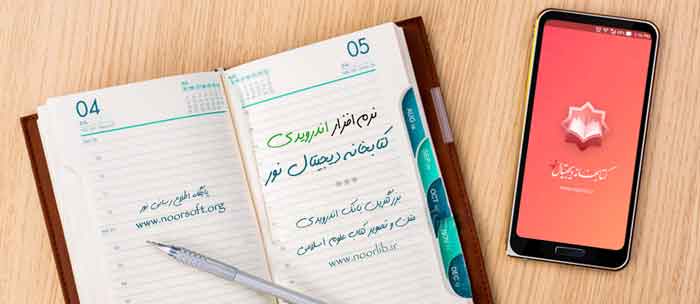 04
پایگاه اطلاع رسانی نور
www.noorsoft.org
05
نرم افزار اندرویدی
کتابخانه دیجیتال نور
بزرگترین بانک اندرویدی
متن و تصویر کتاب علوم اسلامی
www.noorlib.ir
AUG
SEP
OCT
NOV
DEC
کتابخانه دیجیتال نور